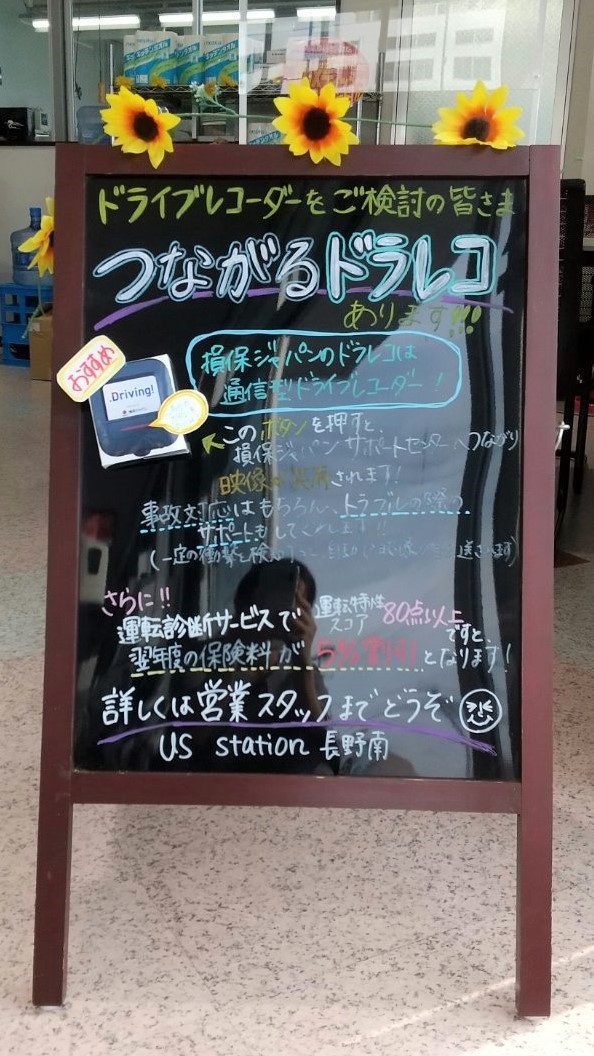 ドライブレコーダーをご検討の皆さま
つながるドラレコ
あります!!!
おすすめ
.Driving!
損保ジャパンのドラレコは
通信型ドライブレコーダー!
このボタンを押すと、
損保ジャパンサポートセンターへつながり
映像も共有されます!
事故対応はもちろん、トラブルの際の
サポートもしてくれます!!
(一定の衝撃を検知すると、自動
さらに!!
運転診断サービスで 運転特性スコア 80点以上ですと、
翌年度の保険料が 5%割引となります!
詳しくは営業スタッフまでどうぞ
US station 長野南